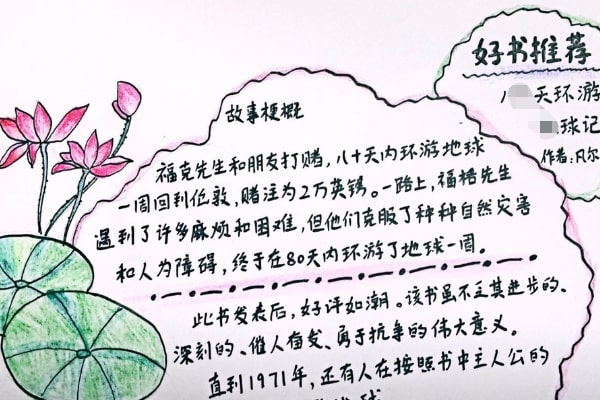 好书推荐
八天环游
球记
作者:凡尔
故事梗概
福克先生和朋友打赌,八十天内环游地球
一周回到伦敦,赌注为2万英镑。一路上,福格先生
遇到了许多麻烦和困难,但他们克服了种种自然灾害
和人为障碍,终于在80天内环游了地球一周。
此书发表后,好评如潮。该书虽不主其进步的、
深刻的、催人奋发、勇于抗争的伟大意义。
直到1971年,还有人在按照书中主人公的
球